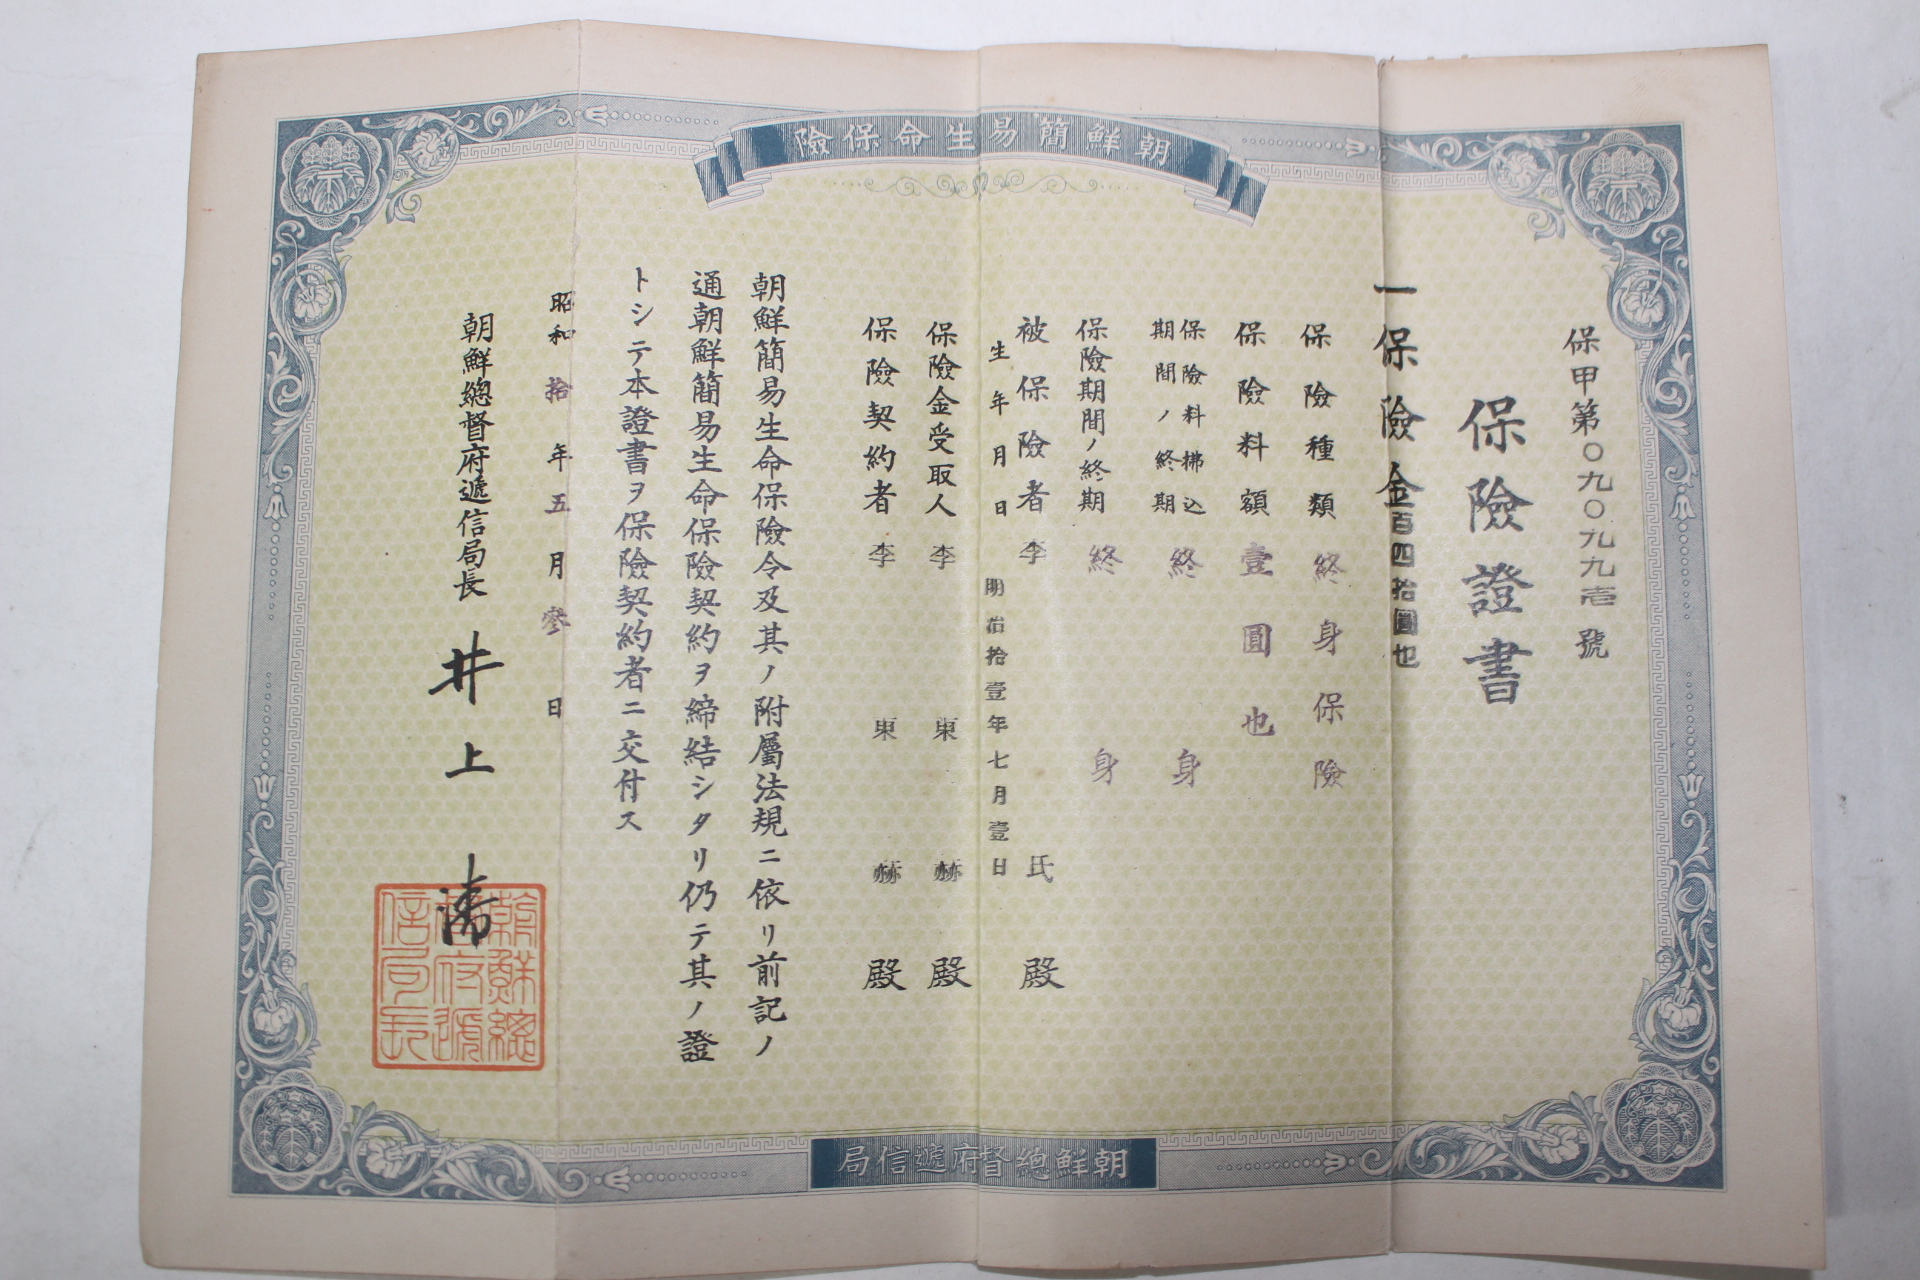 朝鮮簡易生命保險
保甲第〇九〇九九壱號
保險證書
一保險金百四拾圓也
保險種類 終身保險
保險料額 壹圓也
保險料拂込期間ノ終期 終身
保險期間ノ終期 終身
被保險者 李氏殿
生年月日 明治拾壹年七月壹日
保險金受取人 李東赫殿
保險契約者 李東赫殿
朝鮮簡易生命保險令及其ノ附屬法規ニ依リ前記ノ
通朝鮮簡易生命保險契約ヲ締結シタリ仍テ其ノ證
トシテ本證書ヲ保險契約者ニ交付ス
昭和拾年五月參日
朝鮮總督府遞信局長 井上清
朝鮮總督府遞信局長
朝鮮總督府遞信局